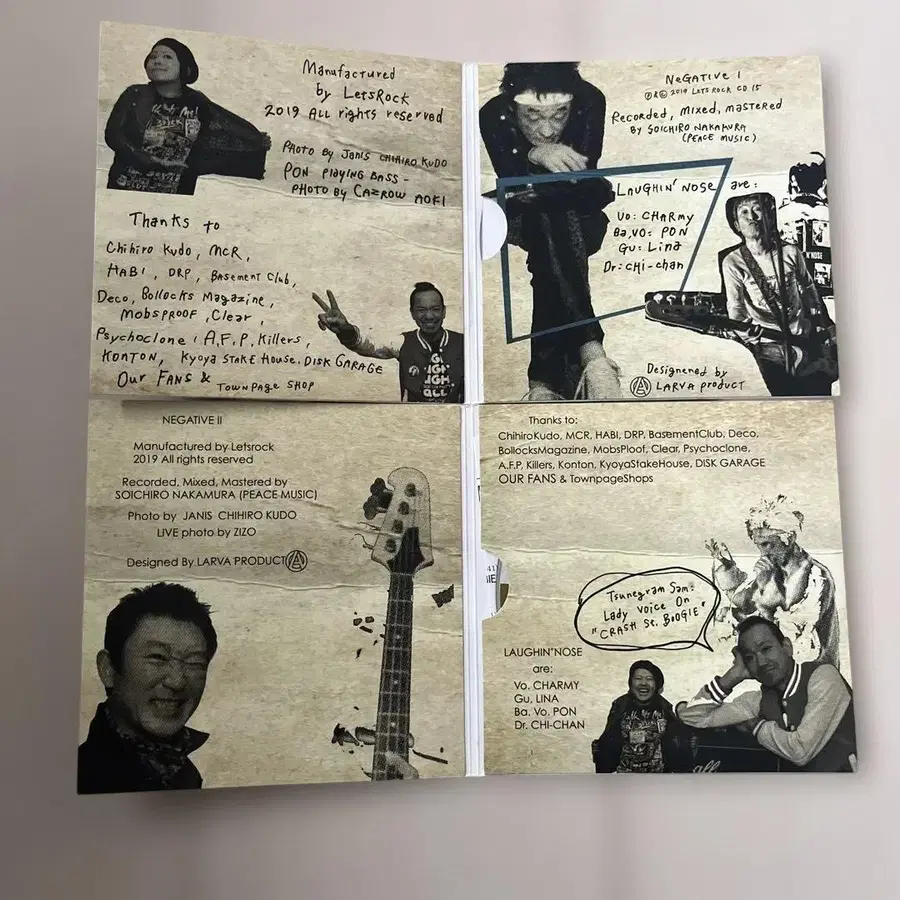 Manufactured
by LetsRock
2019 All rights reserved
PHOTO BY JANIS CHIHIRO KUDO
PON PLAYING BASS -
PHOTO BY CAZROW AOKI
Thanks to
Chihiro Kudo, MCR,
HABI, DRP, Basement Club,
Deco, Bollocks Magazine,
MOBSPROOF, Clear,
Psychoclone, A.F.P, Killers,
KONTON, Kyoya STAKE House, DISK GARAGE
Our FANS &
TOWNPAGE SHOP
NeGATIVE I
℗©2019 LETS ROCK CD 15
Recorded, Mixed, Mastered
BY SOICHIRO NAKAMURA
(PEACE MUSIC)
LAUGHIN' NOSE are:
Vo: CHARMY
Ba,Vo: PON
Gu: Lina
Dr: CHI-chan
Designered by
LARVA PRODUCT
NEGATIVE II
Manufactured by Letsrock
2019 All rights reserved
Recorded, Mixed, Mastered by
SOICHIRO NAKAMURA (PEACE MUSIC)
Photo by JANIS CHIHIRO KUDO
LIVE photo by ZIZO
Designed By LARVA PRODUCT
Thanks to:
ChihiroKudo, MCR, HABI, DRP, BasementClub, Deco,
BollocksMagazine, MobsPloof, Clear, Psychoclone,
A.F.P, Killers, Konton, KyoyaStakeHouse, DISK GARAGE
OUR FANS & TownpageShops
Tsunegram Sam:
Lady Voice On
"CRASH St. BOOGIE"
LAUGHIN'NOSE
are:
Vo. CHARMY
Gu, LINA
Ba. Vo. PON
Dr. CHI-CHAN